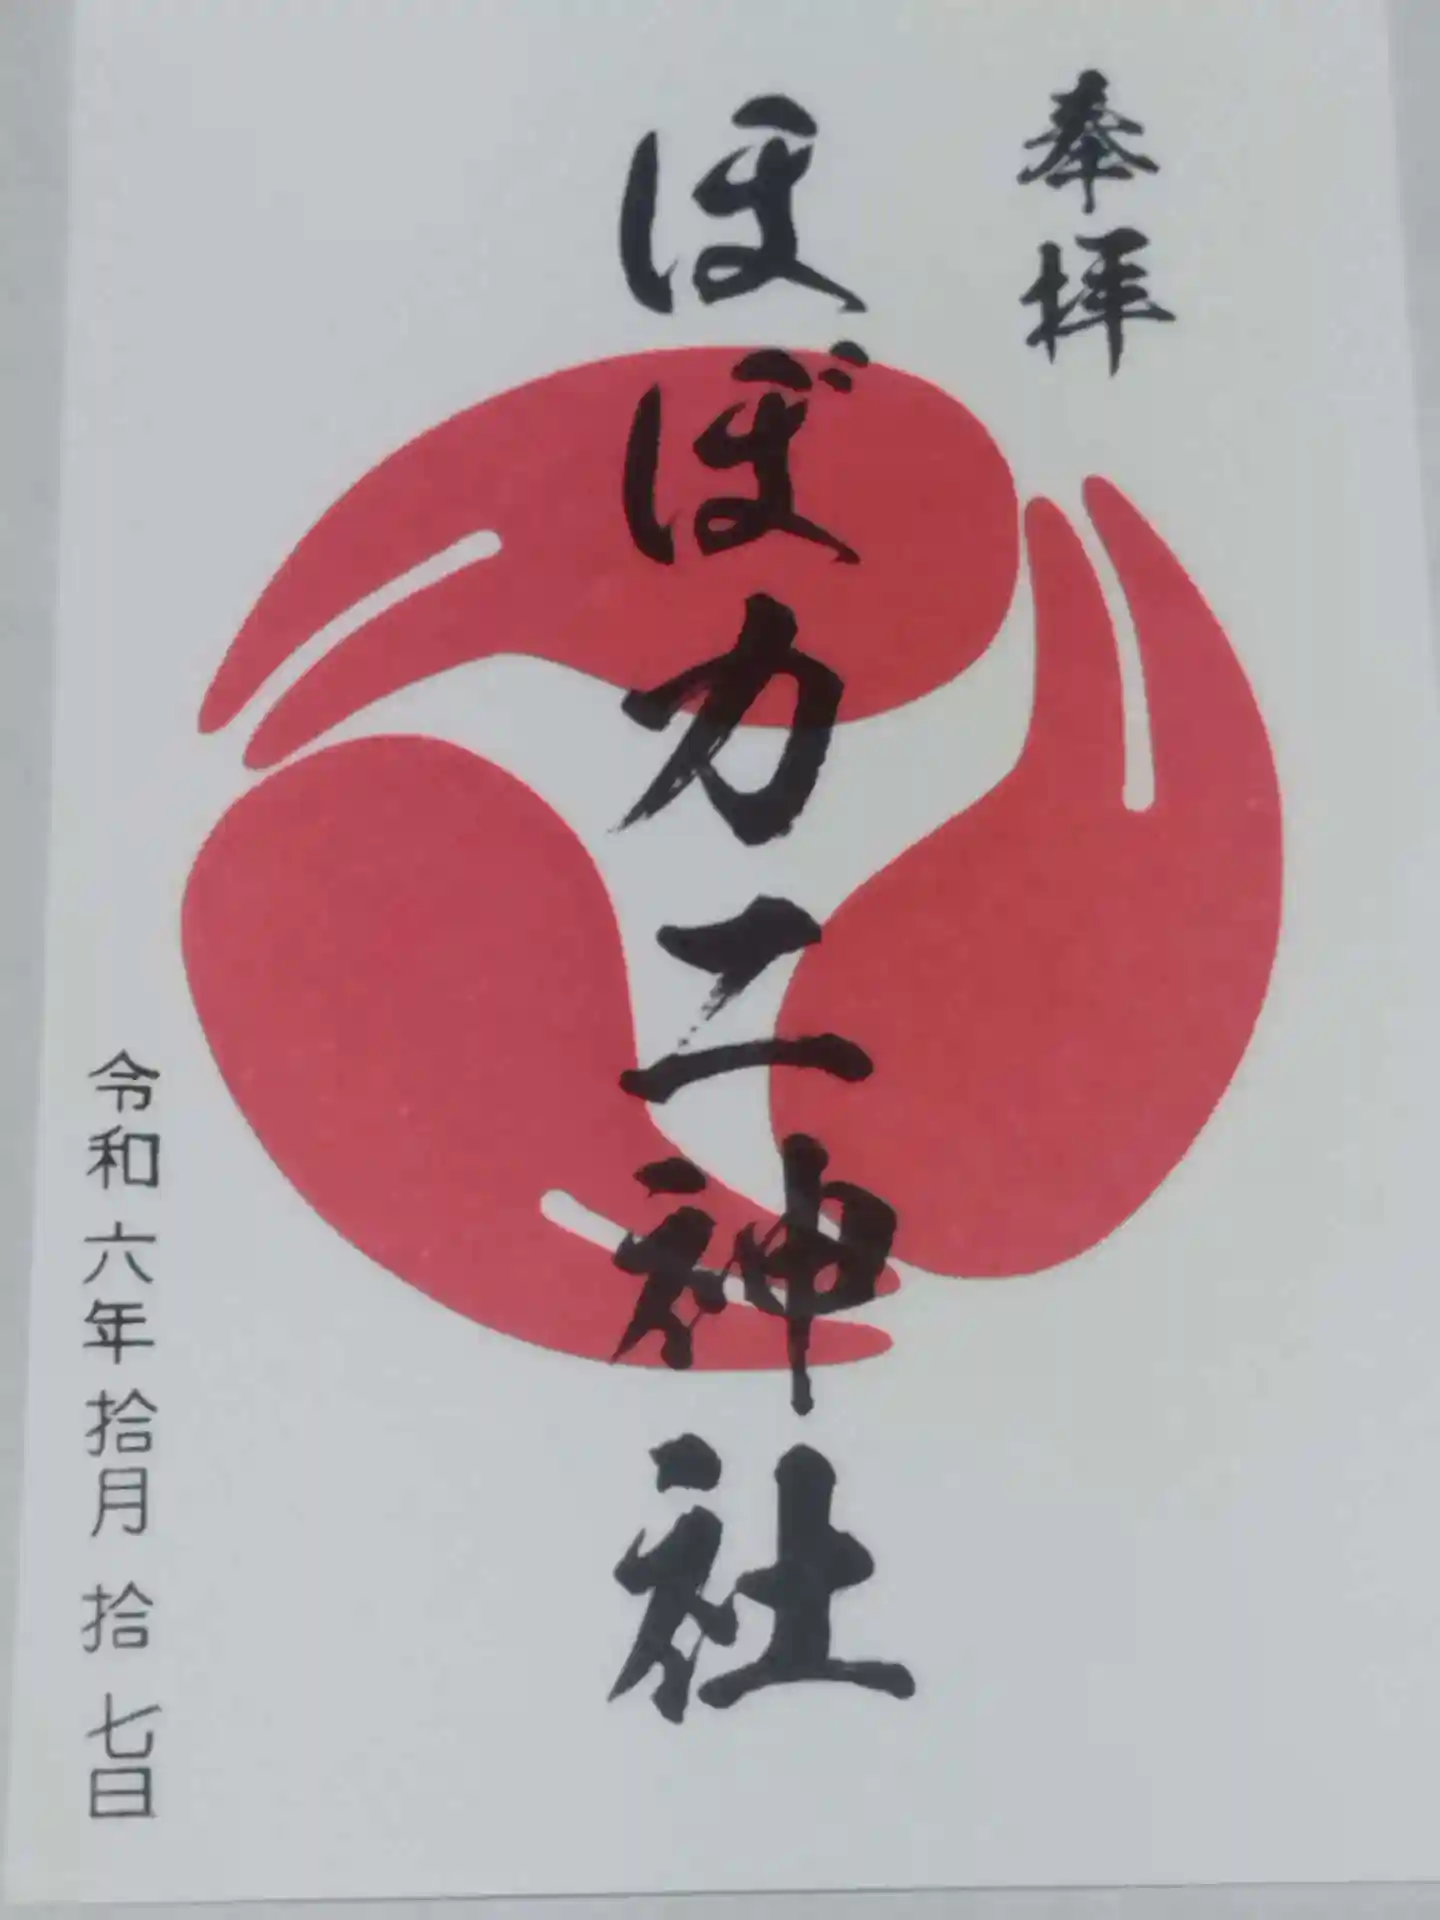 奉拝
ほぼカニ神社
令和六年拾月拾七日